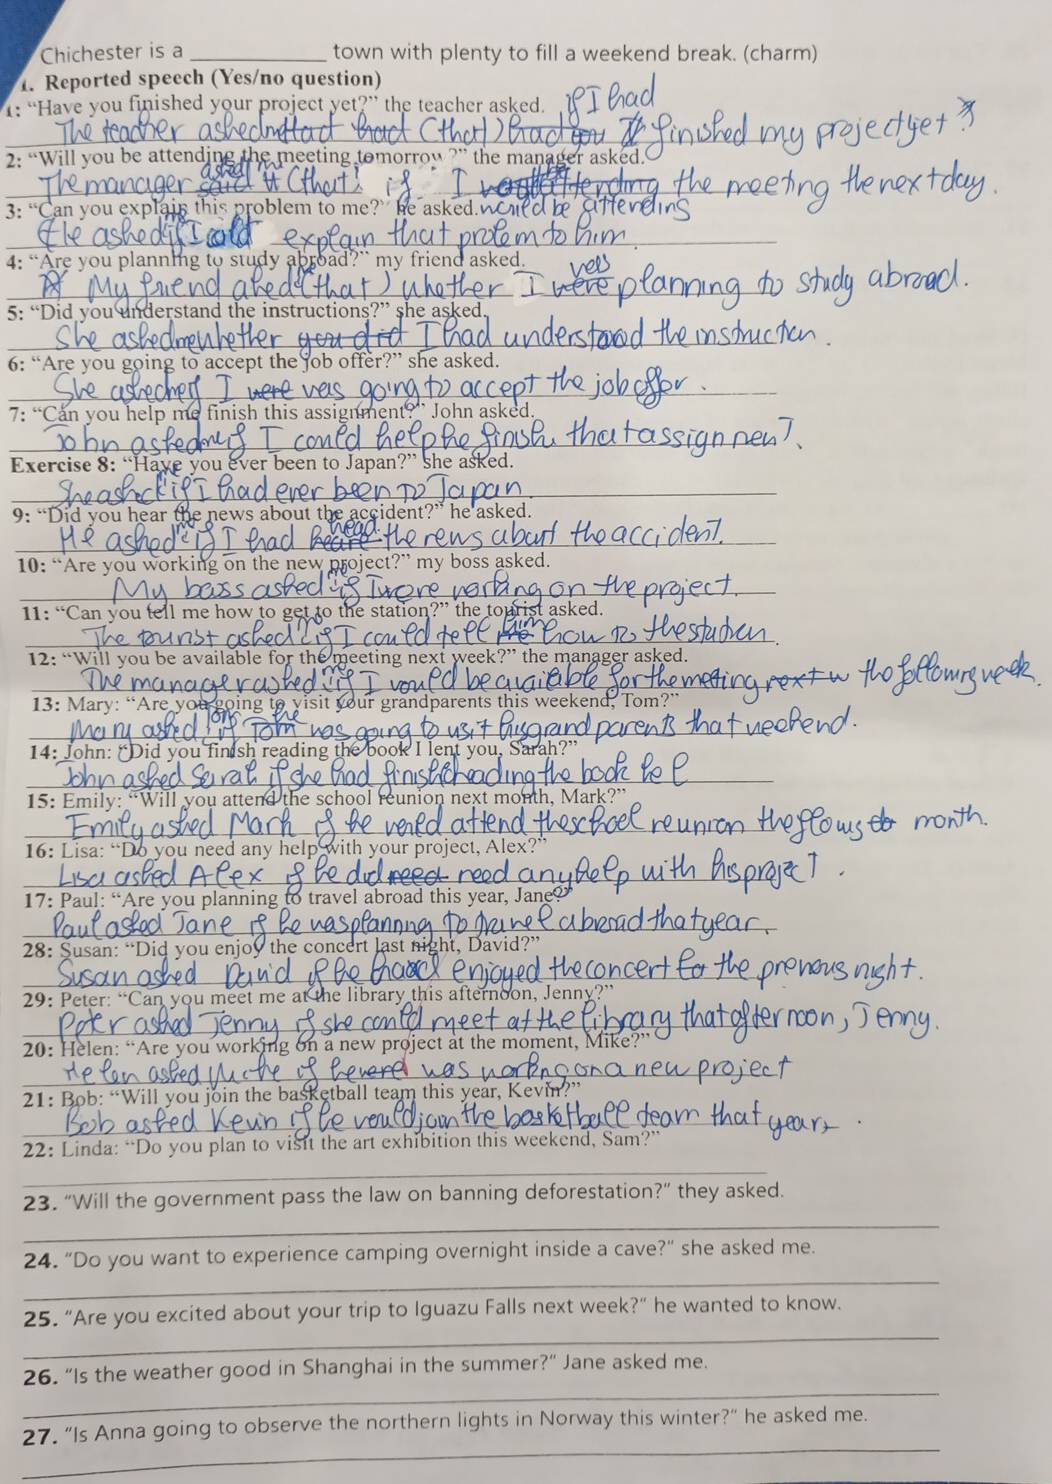 Chichester is a ____________ town with plenty to fill a weekend break. (charm)
1. Reported speech (Yes/no question)
1: “Have you finished your project yet?” the teacher asked. if I had
The teacher asked had (that) had you finished my project yet
2: “Will you be attending the meeting tomorrow?” the manager asked.
The manager said asked me (that) if I the meeting the next day.
3: “Can you explain this problem to me?” he asked. would be attending
He asked me if I could explain that problem to him.
4: “Are you planning to study abroad?” my friend asked.
My friend aked (that) whether I were was planning to study abroad.
5: “Did you understand the instructions?” she asked.
She asked me whether you did I had understood the instruction.
6: “Are you going to accept the job offer?” she asked.
She asked me if I were was going to accept the job offer.
7: “Can you help me finish this assignment?” John asked.
John asked me if I could help he finish that assignment.
Exercise 8: “Have you ever been to Japan?” she asked.
She asked if I had ever been to Japan.
9: “Did you hear the news about the accident?” he asked.
He asked me if I had heard the news about the accident.
10: “Are you working on the new project?” my boss asked.
My boss asked me if I were working on the project.
11: “Can you tell me how to get to the station?” the tourist asked.
The tourist asked me if I could tell me him how to the station.
12: “Will you be available for the meeting next week?” the manager asked.
The manager asked me if I would be available for the meeting next w the following week.
13: Mary: “Are you going to visit your grandparents this weekend, Tom?”
Mary asked Tom if Tom he was going to visit his grandparents that weekend.
14: John: “Did you finish reading the book I lent you, Sarah?”
John asked Sarah if she had finished reading the book he l
15: Emily: “Will you attend the school reunion next month, Mark?”
Emily asked Mark if he would attend the school reunion the flows month.
16: Lisa: “Do you need any help with your project, Alex?”
Lisa asked Alex if he did need need any help with his project.
17: Paul: “Are you planning to travel abroad this year, Jane?”
Paul asked Jane if he was planning to travel abroad that year.
28: Susan: “Did you enjoy the concert last night, David?”
Susan asked David if he had enjoyed the concert the previous night.
29: Peter: “Can you meet me at the library this afternoon, Jenny?”
Peter asked Jenny if she could meet at the library that afternoon, Jenny.
20: Helen: “Are you working on a new project at the moment, Mike?”
Helen asked Mike if he were was working on a new project
21: Bob: “Will you join the basketball team this year, Kevin?”
Bob asked Kevin if he would join the basketball team that year.
22: Linda: “Do you plan to visit the art exhibition this weekend, Sam?”
23. “Will the government pass the law on banning deforestation?” they asked.
24. “Do you want to experience camping overnight inside a cave?” she asked me.
25. “Are you excited about your trip to Iguazu Falls next week?” he wanted to know.
26. “Is the weather good in Shanghai in the summer?” Jane asked me.
27. “Is Anna going to observe the northern lights in Norway this winter?” he asked me.